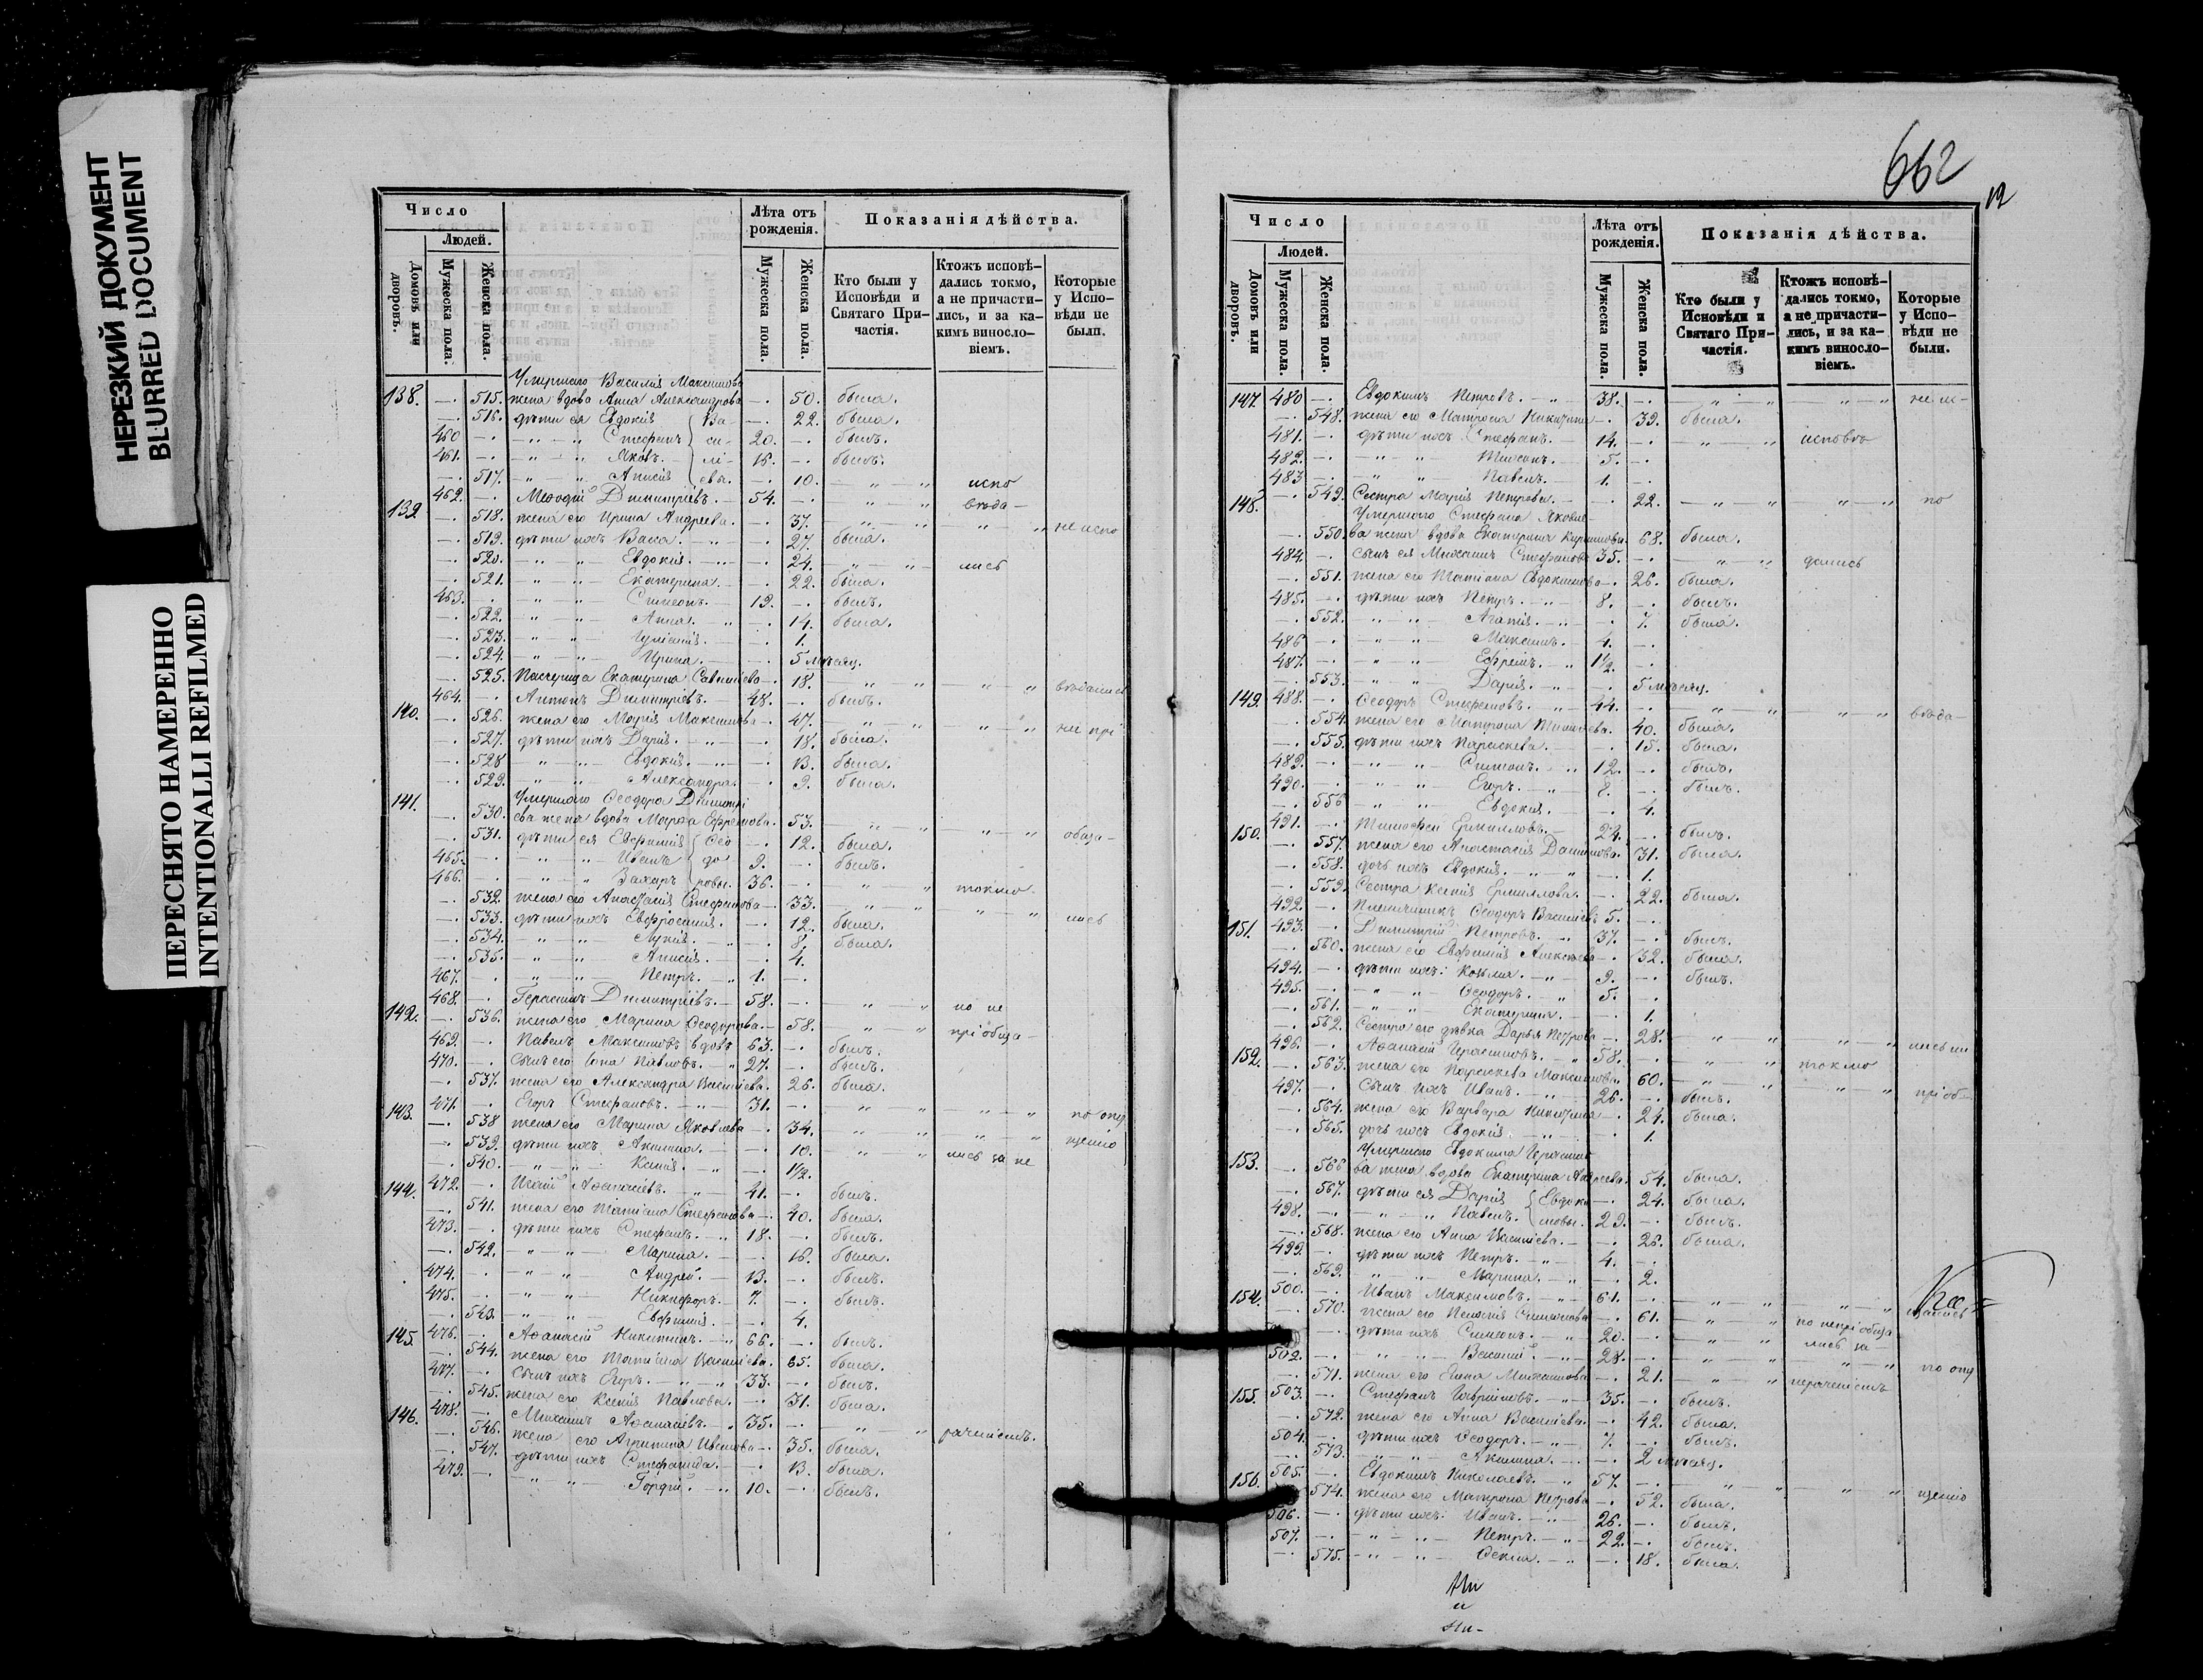 НЕРЕЗКИЙ ДОКУМЕНТ
BLURRED DOCUMENT
ПЕРЕСНЯТО НАМЕРЕННО
INTENTIONALLI REFILMED
Число
Людей.
Домовъ или дворовъ.
Мужеска пола.
Женска пола.
Лѣта отъ рожденія.
Мужеска пола.
Женска пола.
Показанія дѣйства.
Кто были у Исповѣди и Святаго Причастія.
Ктожъ исповѣдались токмо, а не причастились, и за какимъ винословіемъ.
Которые у Исповѣди не были.
Умершаго Василія Максимова
138. —. 515. жена вдова Анна Александрова —. 50. была.
—. 516. дѣти ея Евдокія { Ва- —. 22. была.
460 —. —„—„— Стефанъ си- 20. —. былъ.
461. —. —„—„— Яковъ. лі- 16. —. былъ.
—. 517. —„—„— Анисія евы. —. 10. —„—„ испо
139 462. —. Меѳодій Димитріевъ. 54. —. —„—„ вѣда-
—. 518. жена его Ирина Андреева. —. 37. —„—„ —„—„ не испо
—. 519. дѣти ихъ Васса. —. 27. была.
—. 520. —„—„— Евдокія. —. 24. —„—„ лись
—. 521. —„—„— Екатерина. —. 22. была.
463. —. —„—„— Симеонъ. 19. —. былъ.
—. 522. —„—„— Анна. —. 14. была.
—. 523. —„—„— Іуліанія. —. 1.
—. 524. —„—„— Ирина. —. 5 мѣсяц.
—. 525. Пасчерица Екатерина Савельева —. 18. —„—„ —„—„ вѣдались
140. 464. —. Антонъ Димитріевъ. 48. —. былъ.
—. 526. жена его Марія Максимова —. 47. —„—„ —„—„ не прі
—. 527. дѣти ихъ Дарія. —. 18. была.
—. 528 —„—„— Евдокія. —. 13. была.
—. 529. —„—„— Александра. —. 9. была.
141. Умершаго Ѳеодора Димитрі
—. 530. ева жена вдова Марѳа Ефремова. 53. —„—„ —„—„ обща-
—. 531. дѣти ея Евфимія { Ѳео —. 12. была.
465. —. —„—„— Иванъ до 9. —. былъ.
466. —. —„—„— Захаръ ровы. 36. —. —„—„ токмо
—. 532. жена его Анастасія Стефанова —. 33. —„—„ —„—„ лись
—. 533. дѣти ихъ Евфросинія. —. 12. была.
—. 534. —„—„— Лукія. —. 8. была.
—. 535. —„—„— Анисія. —. 4.
467. —. —„—„— Петръ. 1. —.
142. 468. —. Герасимъ Димитріевъ. 58. —. —„—„ но не
—. 536. жена его Марина Ѳеодорова. —. 58. —„—„ пріобща-
469. —. Павелъ Максимовъ вдовъ 63. —. былъ.
470. —. Сынъ его Іона Павловъ. 27. —. былъ.
—. 537. жена его Александра Васильева. 26. была.
143. 471. —. Егоръ Стефановъ. 31. —. —„—„ —„—„ по опу
—. 538 жена его Марина Яковлева —. 34. —„—„ —„—„ щенію
—. 539. дѣти ихъ Акилина. —. 10. —„—„ лись за не
—. 540. —„—„— Ксенія. —. 1½.
144. 472. —. Исаій Аѳанасіевъ. 41. —. былъ.
—. 541. жена его Татіана Стефанова —. 40. была.
473. —. дѣти ихъ Стефанъ. 18. —. былъ.
—. 542. —„—„— Марина. —. 16. была.
474. —. —„—„— Андрей. 13. —. былъ.
475. —. —„—„— Никифоръ. 7. —. былъ.
—. 543 —„—„— Евфимія. —. 4.
145. 476. —. Аѳанасій Никитинъ. 66. —. былъ.
—. 544. жена его Татіана Васильева. 65. была.
477. —. Сынъ ихъ Егоръ. 33. —. былъ.
—. 545. жена его Ксенія Павлова. —. 31. была.
146. 478. —. Михаилъ Аѳанасіевъ. 35. —. —„—„ раченіемъ.
—. 546. жена его Агрипина Иванова —. 35. была.
—. 547. дѣти ихъ Стефанида. —. 13. была.
479. —. —„—„— Гордій. 10. —. былъ.
662
12
Число
Людей.
Домовъ или дворовъ.
Мужеска пола.
Женска пола.
Лѣта отъ рожденія.
Мужеска пола.
Женска пола.
Показанія дѣйства.
Кто были у Исповѣди и Святаго Причастія.
Ктожъ исповѣдались токмо, а не причастились, и за какимъ винословіемъ.
Которые у Исповѣди не были.
147. 480 —. Евдокимъ Петровъ. 38. —. —„—„ —„—„ не ис-
—. 548. жена его Матрона Никитина —. 39. была.
481. —. дѣти ихъ Стефанъ. 14. —. —„—„ исповѣ
482. —. —„—„— 5. —.
483 —. —„—„— Павелъ. 1. —.
148. —. 549. Сестра Марія Петрова. —. 22. —„—„ —„—„ по
Умершаго Стефана Яковле-
—. 550. ва жена вдова Екатерина 68. была.
484. —. Сынъ ея Михаилъ Стефановъ 35. —. —„—„ дались
—. 551. жена его Татіана Евдокимова —. 26. была.
485. —. дѣти ихъ Петръ. 8. —. былъ.
—. 552. —„—„— Агапія. —. 7. была.
486 —. —„—„— Максимъ. 4. —.
487. —. —„—„— Ефремъ. 1½. —.
—. 553. —„—„— Дарія. —. 5 мѣсяц.
149. 488. —. Ѳеодоръ Стефановъ. 44. —. —„—„ —„—„ вѣда-
—. 554. жена его Матрона Тимоѳеева. 40. была.
—. 555. дѣти ихъ Параскева. —. 15. была.
489. —. —„—„— Симеонъ. 12. —. былъ.
490. —. —„—„— Егоръ. 8. —. былъ.
—. 556 —„—„— Евдокія. —. 4.
150. 491. —. Тимоѳей Ермилловъ. 24. —. былъ.
—. 557. жена его Анастасія 31. была.
—. 558. дочь ихъ Евдокія. —. 1.
—. 559. Сестра Ксенія Ермиллова. —. 22. была.
492. —. Племянникъ Ѳеодоръ Васильевъ 5. —.
151. 493. —. Димитрій Петровъ. 37. —. былъ.
—. 560. жена его Евфимія Алексѣева —. 32. была.
494. —. дѣти ихъ: Козьма. 9. —. былъ.
495. —. —„—„— Ѳеодоръ. 5. —.
—. 561. —„—„— Екатерина. —. 1.
—. 562. Сестра его дѣвка Дарья Петрова —. 28. —„—„ —„—„ лись ни
152. 496. —. Аѳанасій Герасимовъ. 58. —. —„—„ токмо
—. 563. жена его Параскева Максимова. 60. —„—„ —„—„ пріоб-
497. —. Сынъ ихъ Иванъ. 26. —. былъ.
—. 564. жена его Варвара Никитина —. 24. была.
—. 565. дочь ихъ Евдокія. —. 1.
153. Умершаго Евдокима Герасимо-
—. 566 ва жена вдова Екатерина Андреева. 54. была.
—. 567. дѣти ея Дарія { Евдоки —. 24. была.
498. —. —„—„— Павелъ. мовы. 29. —. былъ.
—. 568. жена его Анна Васильева. —. 26. была.
499. —. дѣти ихъ Петръ. 4. —.
—. 569. —„—„— Марина. —. 2.
154. 500. —. Иванъ Максимовъ. 61. —. —„—„ —„—„ щались
—. 570. жена его Пелагія Симеонова —. 61. —„—„ но непріобща
—. дѣти ихъ Симеонъ. 20. —. —„—„ лись за-
502. —. —„—„— Василій. 28. —. —„—„ —„—„ по опу
—. 571. жена его Елена —. 21. —„—„ нераченіемъ
155. 503. —. Стефанъ Гавриловъ. 35. —. былъ.
—. 572. жена его Анна Васильева. —. 42. была.
504. —. дѣти ихъ Ѳеодоръ. 7. —. былъ.
—. 573. —„—„— Акилина. —. 2 мѣсяц.
156. 505. —. Евдокимъ Николаевъ. 57. —. —„—„ —„—„ щенію
—. 574. жена его Матрона Петрова —. 52. была.
506. —. дѣти ихъ: Иванъ. 26. —. былъ.
507. —. —„—„— Петръ. 22. —. былъ.
—. 575. —„—„— Ѳекла. —. 18. была.